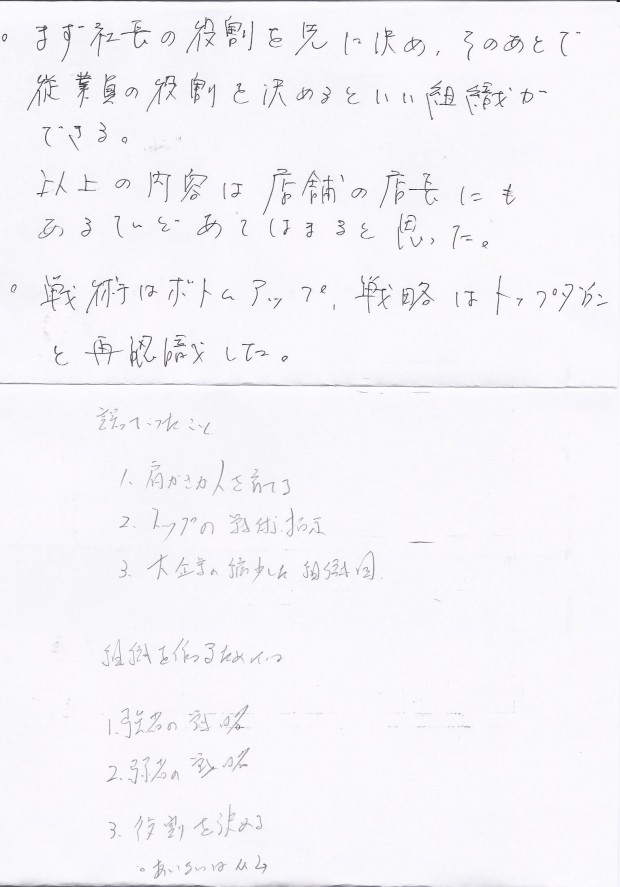 。まず社長の役割を先に決め、そのあとで
従業員の役割を決めるといい組織が
できる。
以上の内容は店舗の店長にも
あるていどあてはまると思った。
。戦術はボトムアップ、戦略はトップダウン
と再認識した。
誤っていたこと
1. 肩がきが人を育てる
2. トップの戦術指示
3. 大企業の縮少した組織図
組織を作るために
1. 強者の戦略
2. 弱者の戦略
3. 役割を決める